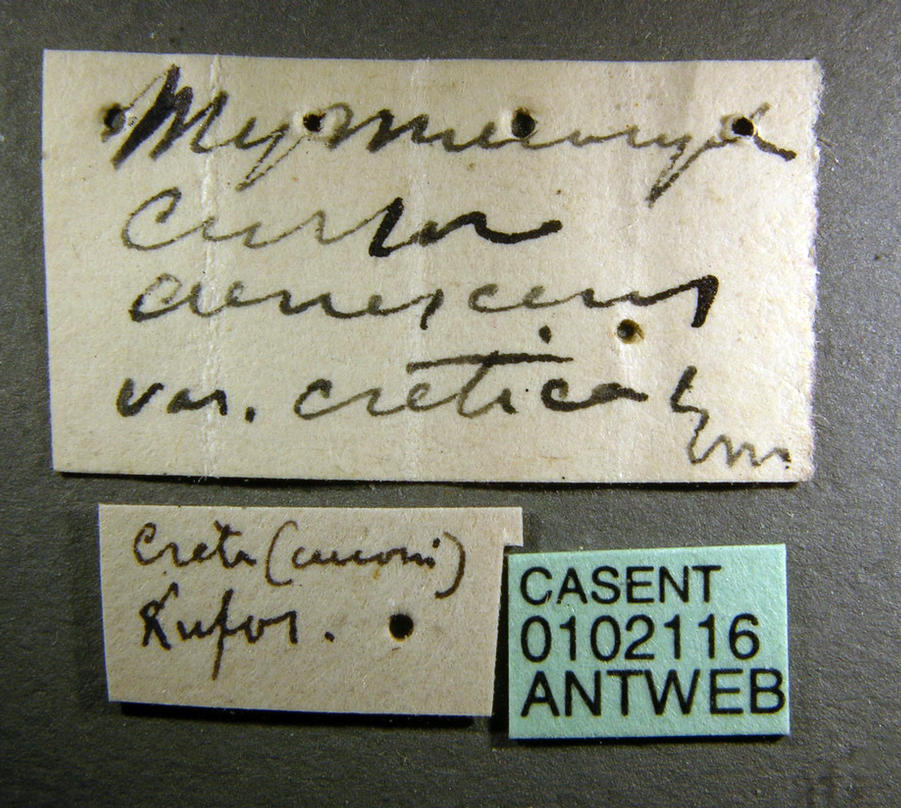 Myrmecocyst
cursor
aenescens
var. cretica Em
Creta (Cecconi)
CASENT
0102116
ANTWEB